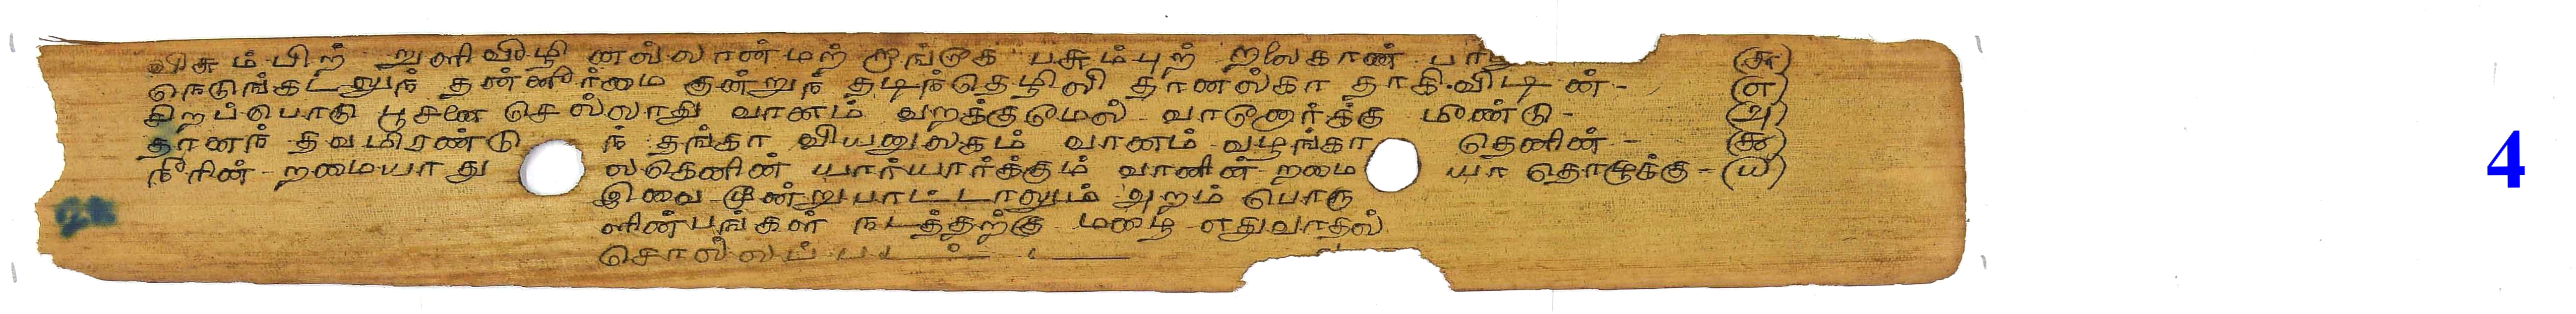 விசும்பிற் றுளிவீழி னல்லான்மற் றாங்கே பசும்புற் றலைகாண் பரி (௬)
நெடுங்கடலுந் தன்னீர்மை குன்றுந் தடிந்தெழிலி தானல்கா தாகிவிடின்- (௭)
சிறப்பொடு பூசனை செல்லாது வானம் வறக்குமேல் வானோர்க்கு மீண்டு- (௮)
தானந் தவமிரண்டு ந் தங்கா வியனுலகம் வானம் வழங்கா தெனின்- (௯)
நீரின்றமையாது லகெனின் யார்யார்க்கும் வானின்றமை யா தொழுக்கு- (௰)
இவை மூன்று பாட்டாலும் அறம் பொரு
ளின்பங்கள் நடத்தற்கு மழை எதுவாதல்
சொல்லப்பட
4